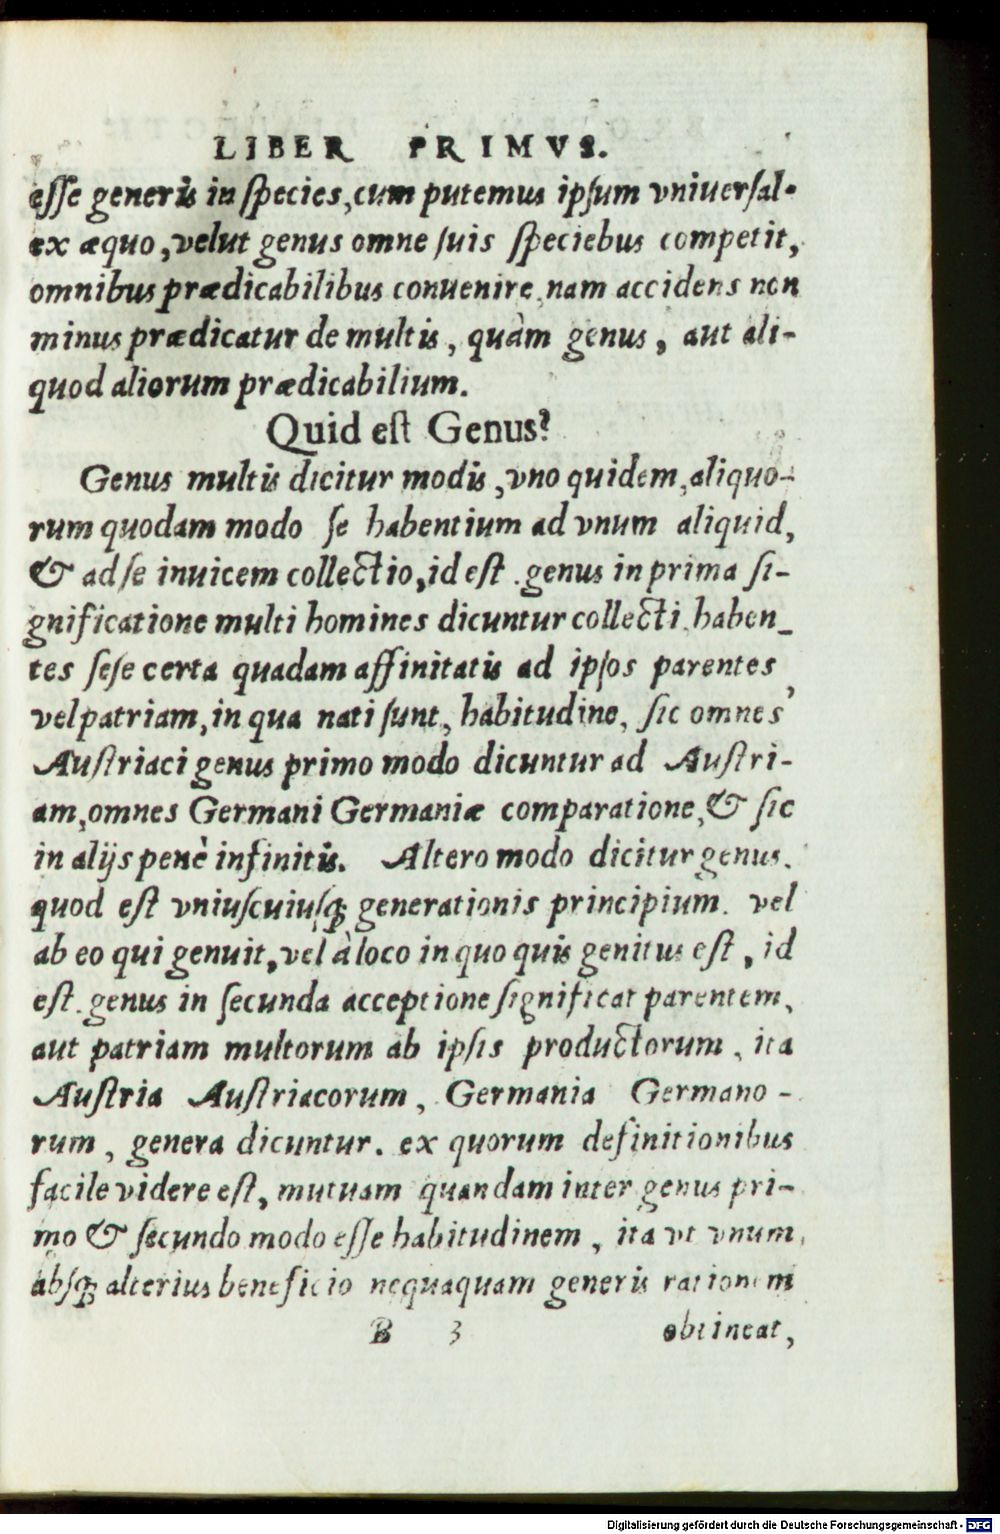 LIBER PRIMVS.
esse generis in species, cum putemus ipsum vniuersal
ex æquo, velut genus omne suis speciebus competit,
omnibus prædicabilibus conuenire, nam accidens non
minus prædicatur de multis, quàm genus, aut ali-
quod aliorum prædicabilium.
Quid est Genus?
Genus multis dicitur modis, vno quidem, aliquo-
rum quodam modo se habentium ad vnum aliquid,
& ad se inuicem collectio, id est. genus in prima si-
gnificatione multi homines dicuntur collecti, haben-
tes sese certa quadam affinitatis ad ipsos parentes,
vel patriam, in qua nati sunt, habitudine, sic omnes
Austriaci genus primo modo dicuntur ad Austri-
am, omnes Germani Germaniæ comparatione, & sic
in alijs penè infinitis. Altero modo dicitur genus.
quod est vniuscuiusq; generationis principium. vel
ab eo qui genuit, vel à loco in quo quis genitus est, id
est. genus in secunda acceptione significat parentem,
aut patriam multorum ab ipsis productorum, ita
Austria Austriacorum, Germania Germano-
rum, genera dicuntur. ex quorum definitionibus
facile videre est, mutuam quandam inter genus pri-
mo & secundo modo esse habitudinem, ita vt vnum,
absq; alterius beneficio nequaquam generis rationem
B 3 obtineat,
Digitalisierung gefördert durch die Deutsche Forschungsgemeinschaft - DFG